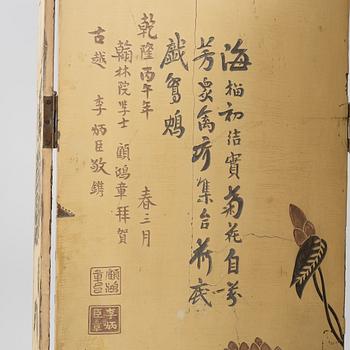 海榴初結實菊花自
芳众禽齐集台荷底
戲鴛鴦
乾隆丙午年 春三月
翰林院學士 顧鴻章拜賀
古越 李炳臣敬鐫
顧鴻章印
李炳臣章